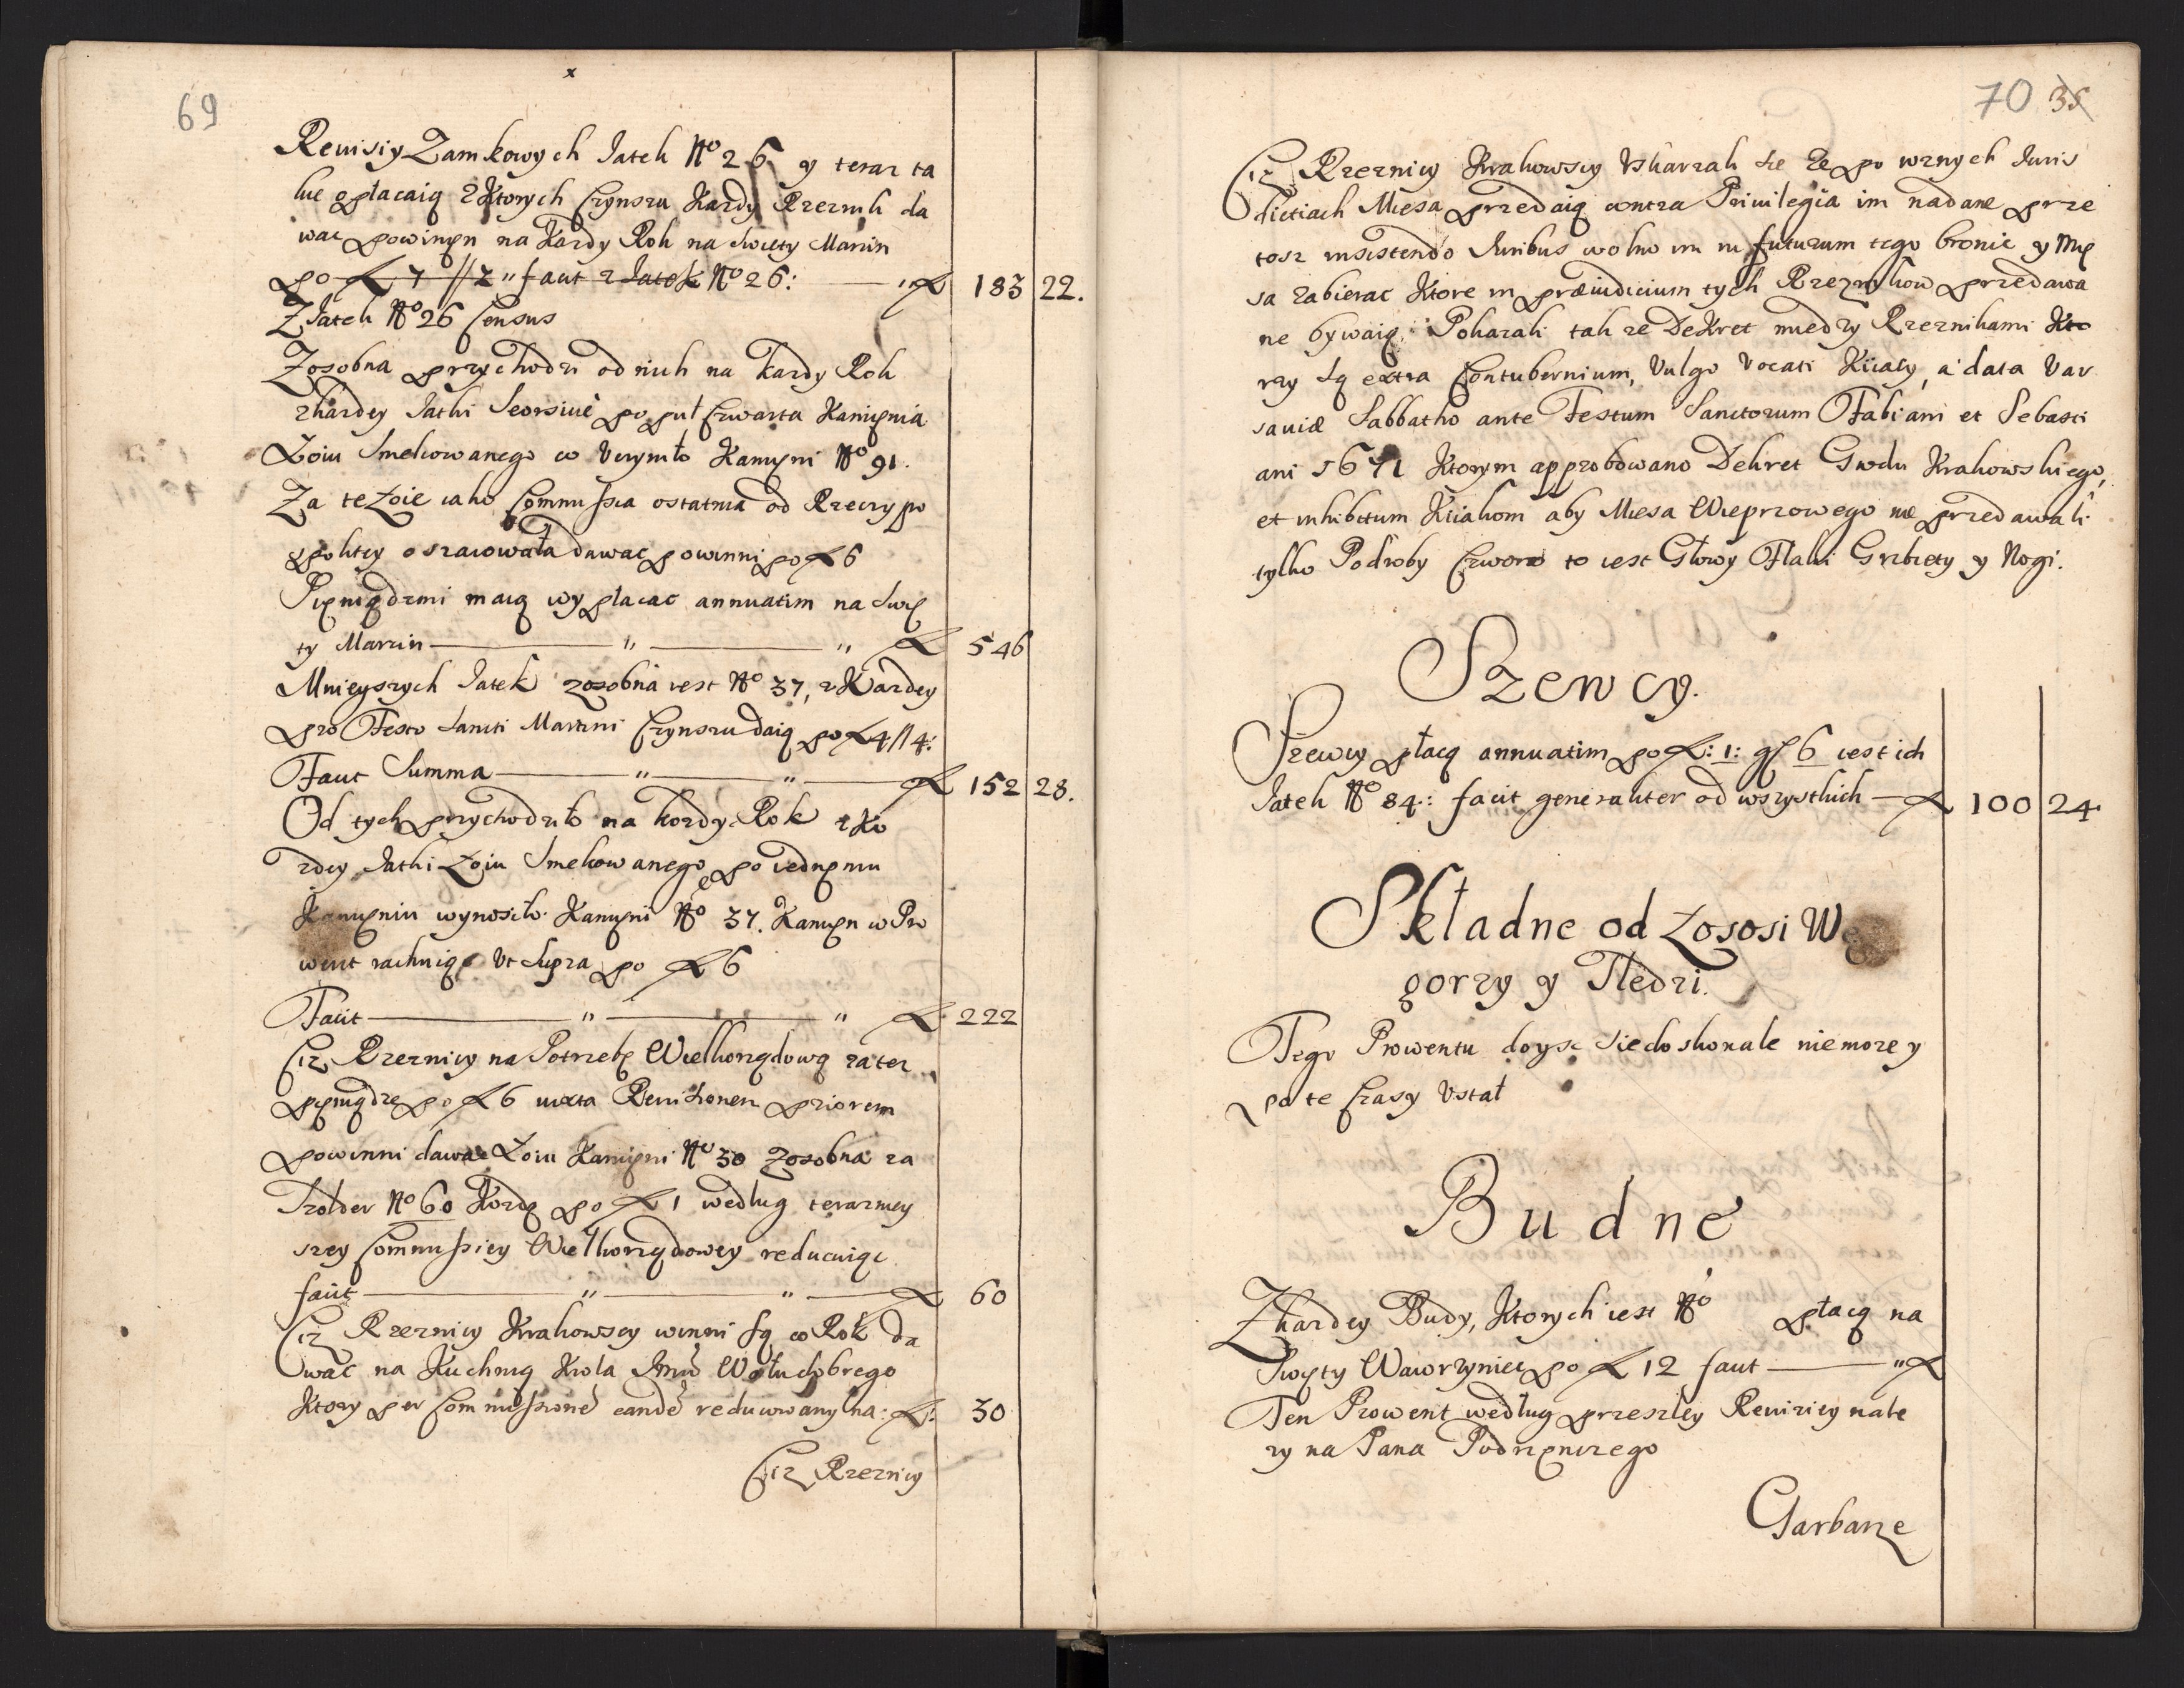 69
x
Reuisiy Zamkowych Iatek No 26 y teraz ta
kze opłacaią z Ktorych Czynszu Kazdy Rzeznik da
wac powinęn na Kazdy Rok na Swięty Marcin
po ƶ 7 // 2 " facit z Iatek No 26: — " ƶ 183 22.
Z Iatek No 26 Census
Zosobna przychodzi od nich na kazdy Rok
zkazdey Iatki Seorsiuè po puł czwarta Kamięnia
Łoiu Smelcowanego co Vczyniło Kamięni No 91.
Za te Łoie iako Commissia ostatnia od Rzeczypo
spolitey oszacowała dawac powinni po ƶ 6
Pięniądzmi maią wypłacac annuatim na Swię
ty Marcin — " — " ƶ 546
Mnieyszych Iatek zosobna iest No 37, z Kazdey
pro Festo Sancti Martini Czynszu daią po ƶ 4 // 4:
Facit Summa — " — " — ƶ 152 28.
Od tych przychodziło na kozdy Rok z Ko
zdey Iatki Łoiu Smelcowanego po iednęmu
Kamięniu wynosiło Kamięni No 37. Kamięn w Pro
went rachuiąc Vt Supra po ƶ 6
Facit — " — " ƶ 222
Ciz Rzeznicy na Potrzebę Wielkorządową za tez
pęniądze po ƶ 6 iuxta Reuisionem priorem
powinni dawac Łoiu Kamięni No 30 zosobna za
Szolder No 60 Kozdę po ƶ 1 według terazniey
szey Commissiey Wielkorządowey reducuiąc
facit — " — " — ƶ 60
Ciz Rzeznicy Krakowscy winni są co Rok da
wac na Kuchnią Krola Jmci Wołu dobrego
Ktory per Commissionē eandē reducowany na: ƶ: 30
Ciz Rzeznicy
70 35
Ciz Rzeznicy Krakowscy Vskarzali sie ze po roznych Iuris
dictiach Miesa przedaią contra Priuilegia im nadane prze
tosz insistendo Iuribus wolno im in futurum tego bronic y Mię
sa zabierac Ktore in præiudicium tych Rzeznikow przedawa
ne bywaią: Pokazali takze Dekret miedzy Rzeznikami Kto
rzy są extra Contubernium, Vulgo Vocati Kiiacy, a data Var
sauiæ Sabbatho ante Festum Sanctorum Fabiani et Sebasti
ani 1641 Ktorym approbowano Dekret Grodu Krakowskiego,
et inhibitum Kiiakom aby Miesa Wieprzowego nie przedawali
tylko Podroby Czworo to iest Głowy Flaki Grzbiety y Nogi.
Szewcy.
Szewcy płacą annuatim po ƶ: 1: gr 6 iest ich
Iatek No 84.: facit generaliter od wszystkich — ƶ 100 24.
Składne od Łososi We
gorzy y Sledzi.
Tego Prowentu doysc sie doskonale nie moze y
po te Czasy Vstał
Budne
Zkazdey Budy, Ktorych iest No płacą na
Swięty Wawrzyniec po ƶ 12 facit — " ƶ
Ten Prowent według przeszley Reuiziey nale
zy na Pana Podrzęnczego
Garbarze